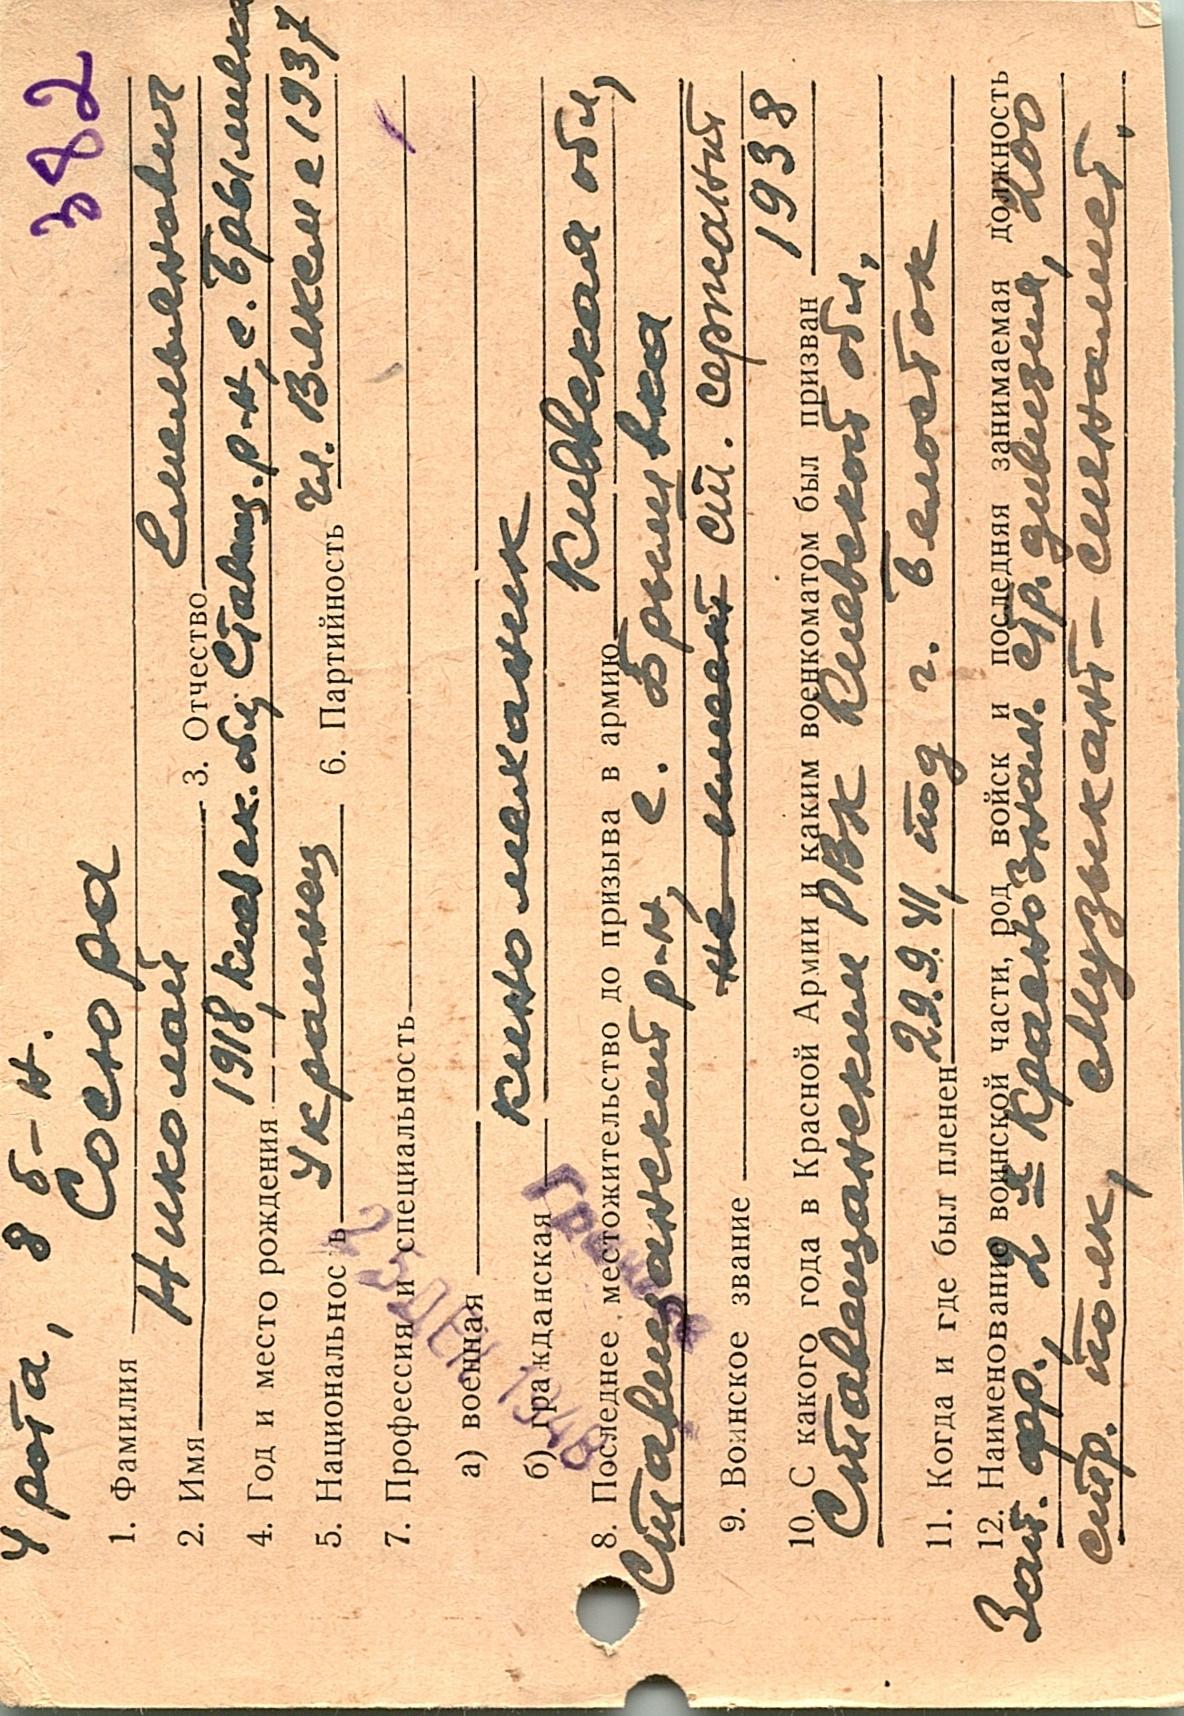 382
4 рота, 8 б-н.
1. Фамилия Сосюра
2. Имя Николай 3. Отчество Емельянович
4. Год и место рождения 1918, киевск. обл, Ставищ. р-н, с. Брыливка
5. Национальность Украинец 6. Партийность Чл. Влксм с 1937
7. Профессия и специальность
а) военная
б) гражданская киномеханик
8. Последнее местожительство до призыва в армию Киевская обл,
Ставищанский р-н, с. Брыливка
9. Воинское звание не имеет ст. сержант
10. С какого года в Красной Армии и каким военкоматом был призван 1938
Ставищанским РВК Киевской обл,
11. Когда и где был пленен 29.9.41, под г.
12. Наименование воинской части, род войск и последняя занимаемая должность
Зап. фр., 2я Краснознам. стр. дивизия, 200
стр. полк, музыкант-
25 ДЕК 1946